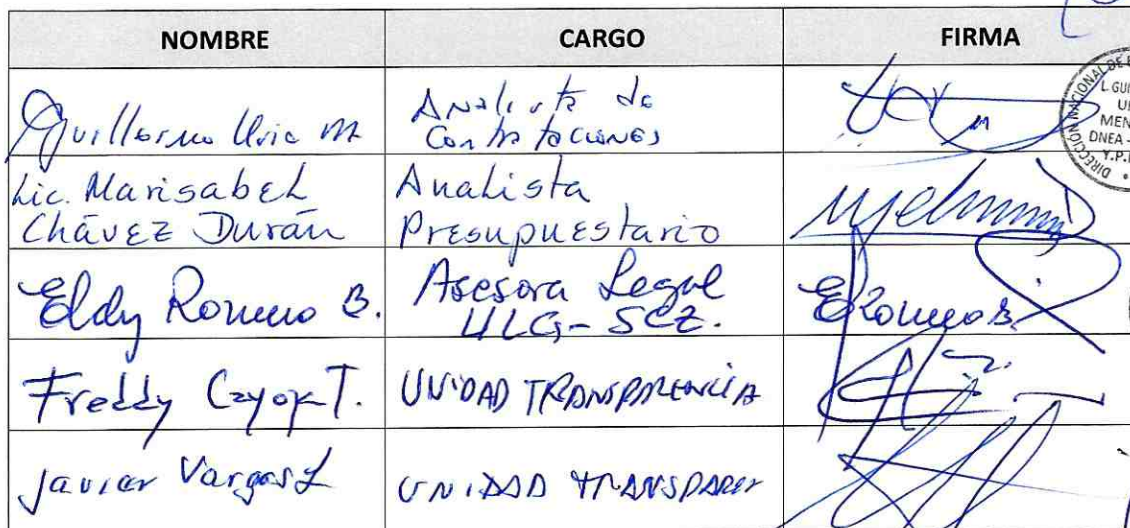 NOMBRE CARGO FIRMA
Guillermo
Analista de
Contrataciones
Lic. Marisabel
Chávez Durán
Analista
Presupuestario
Eldy Romero B.
Asesora Legal
ULG-SCZ.
ERomeroB.
Freddy T.
UNIDAD TRANSPARENCIA
Javier Vargas L
UNIDAD TRANSPAREN
DNEA -